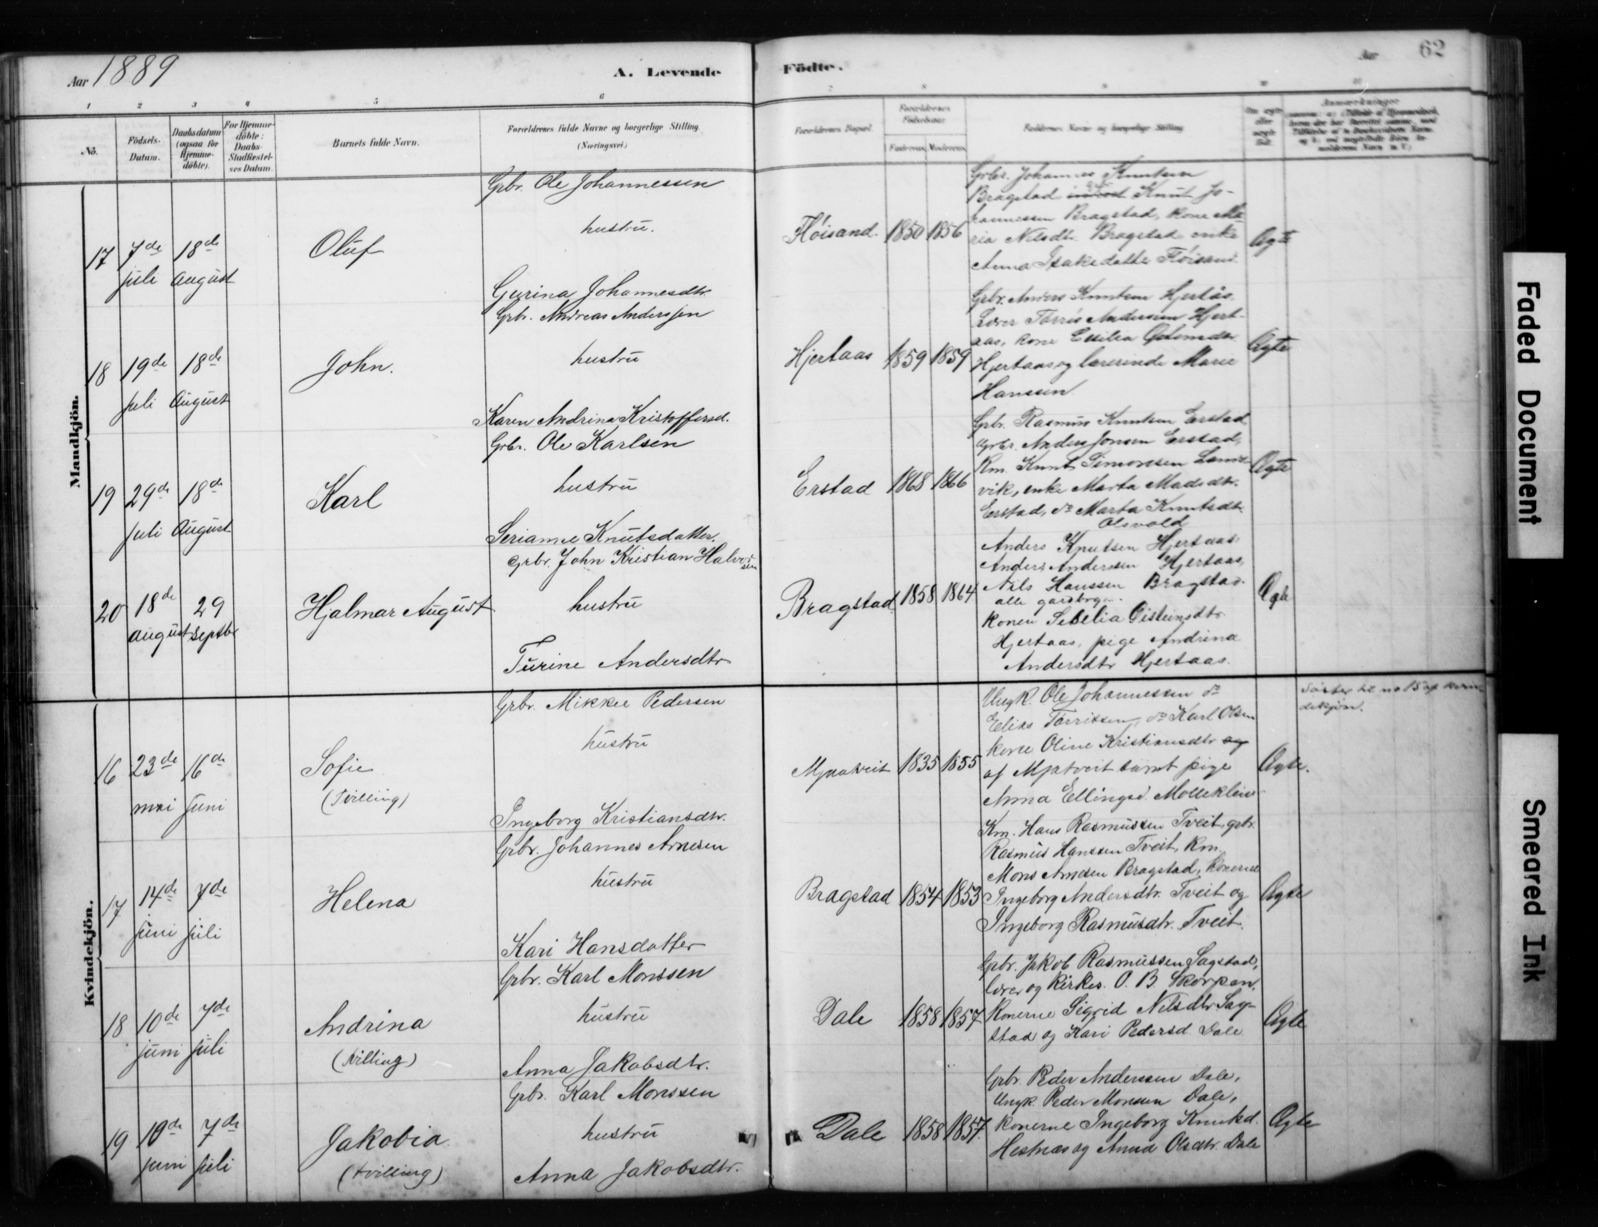 Aar 1889
A. Levende Födte.
Aar
62
1 2 3 4 5 6 7 8 9 10 11
No.
Födsels-Datum.
Daabsdatum (ogsaa for Hjemme-döbte).
For Hjemme-döbte: Daabs-Stadfæstel-ses Datum.
Barnets fulde Navn.
Forældrenes fulde Navne og borgerlige Stilling (Næringsvei).
Forældrenes Bopæl.
Forældrenes Födselsaar.
Faderens. Moderens.
Faddernes Navne og borgerlige Stilling.
Om ægte eller uægte född.
Anmærkninger
Mandkjön.
17
7de juli
18de august
Oluf
Grbr. Ole Johannessen
hustru.
Gurina Johannesdtr.
Flöisand
1850 1856
Grbr. Johannes Knutsen
Bragstad Knut Jo-
hannessen Bragstad, kone Ma-
ria Nilsdtr. Bragstad enke
Anna Isaksdatter Flöisand
Ægte
18
19de juli
18de August
John.
Grb. Andreas Anderssen
hustru
Karen Andrina Kristoffersd.
Hjertaas
1859 1859
Grbr. Anders Knutsen Hjertås.
Lærer Andersen Hjert-
aas, kone
Hjertaas og lærerinde Marie
Hanssen
Ægte
19
29de juli
18de August
Karl
Grbr. Ole Karlsen
hustru
Serianne Knutsdatter.
Erstad
1868 1866
Grb. Rasmus Knutsen Erstad
Grbr. Anders Jonsen Erstad,
Km. Knut Simonsen
vik, enke Marta Madsdtr.
Erstad, do Marta Knutsdtr.
Olsvold
Ægte
20
18de august
29 septbr
Hjalmar August
Grbr. John Kristian Halvor-
sen
hustru
Turine Andersdtr
Bragstad
1858 1864
Anders Knutsen Hjertaas
Anders Anderssen Hjertaas,
Nils Hanssen Bragstad.
alle
konen Sebelia Øisteinsdtr
Hjertaas, pige Andrina
Andersdtr Hjertaas.
Ægte
Kvindekjön.
16
23de mai
16de juni
Sofie
(Tvilling)
Grbr. Mikkel Pedersen
hustru
Ingeborg Kristiansdtr.
Mjaatveit
1835 1855
Ungk. Ole Johannessen do
Elias Torrissen, do Karl Olsen
kone Oline Kristiansdtr og
af Mjatveit samt pige
Anna Ellingsd. Mollekleiv
Ægte.
17
14de juni
7de juli
Helena
Grbr. Johannes Arnesen
hustru
Kari Hansdatter
Bragstad
1854 1853
Km. Hans Rasmussen Tveit, grbr.
Rasmus Hanssen Tveit, Km.
Mons Arnesen Bragstad, konerne
Ingeborg Andersdtr. Tveit og
Ingeborg Rasmusdtr. Tveit.
Ægte
18
10de juni
7de juli
Andrina
(tvilling)
Grbr. Karl Monssen
hustru
Anna Jakobsdtr.
Dale
1858 1857
Grbr. Jakob Rasmussen Sagstad,
lærer og kirkes. O. B. Skorpen.
Konerne Sigrid Nilsdtr Sag-
stad og Kari Pedersd Dale
Ægte
19
10de juni
7de juli
Jakobia
(tvilling)
Grbr. Karl Monssen
hustru
Anna Jakobsdtr.
Dale
1858 1857
Grbr. Peder Anderssen Dale,
Ungk. Peder Monsen Dale,
konerne Ingeborg Knutsd.
Hestnæs og Anna Olsdtr. Dale
Ægte
Faded Document
Smeared Ink